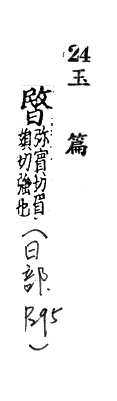 24
玉篇
暋弥賓切眉
殞切強也
(日部.
P.95)